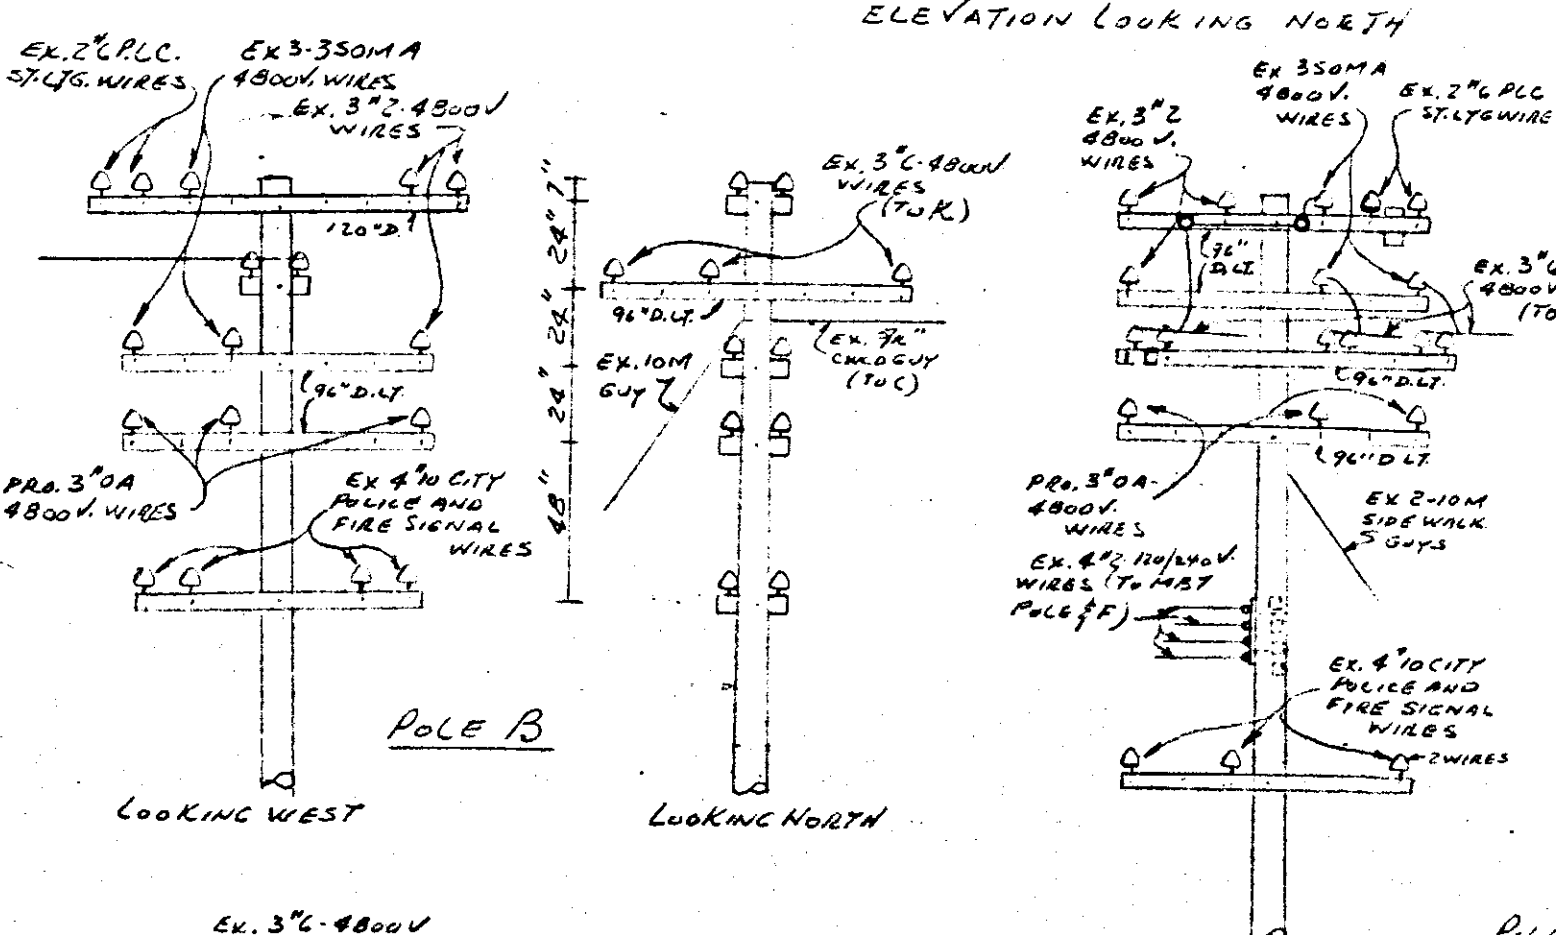 ELEVATION LOOKING NORTH
Ex. 2 #6 P.L.C.
ST. LTG. WIRES
Ex 3-350MA
4800V. WIRES
Ex. 3 #2-4800V
WIRES
120" D.
96" D.LT.
PRO. 3 #0A
4800V. WIRES
Ex 4 #10 CITY
POLICE AND
FIRE SIGNAL
WIRES
POLE B
LOOKING WEST
7"
24"
24"
24"
48"
Ex. 3 #6-4800V
WIRES
(TO K)
96" D.LT.
Ex. 10M
GUY
GUY
(TO C)
LOOKING NORTH
Ex. 3 #2
4800V.
WIRES
Ex 350MA
4800V.
WIRES
Ex. 2 #6 PLC
ST. LTG WIRE
96"
D.LT.
Ex. 3 #6
4800V
(TO
96" D.LT.
96" D LT.
PRO. 3 #0A-
4800V.
WIRES
Ex 2-10M
SIDEWALK
GUYS
Ex. 4 #2 120/240V.
WIRES (TO MBT
POLE & F)
Ex. 4 #10 CITY
POLICE AND
FIRE SIGNAL
WIRES
2 WIRES
Ex. 3 #6-4800V